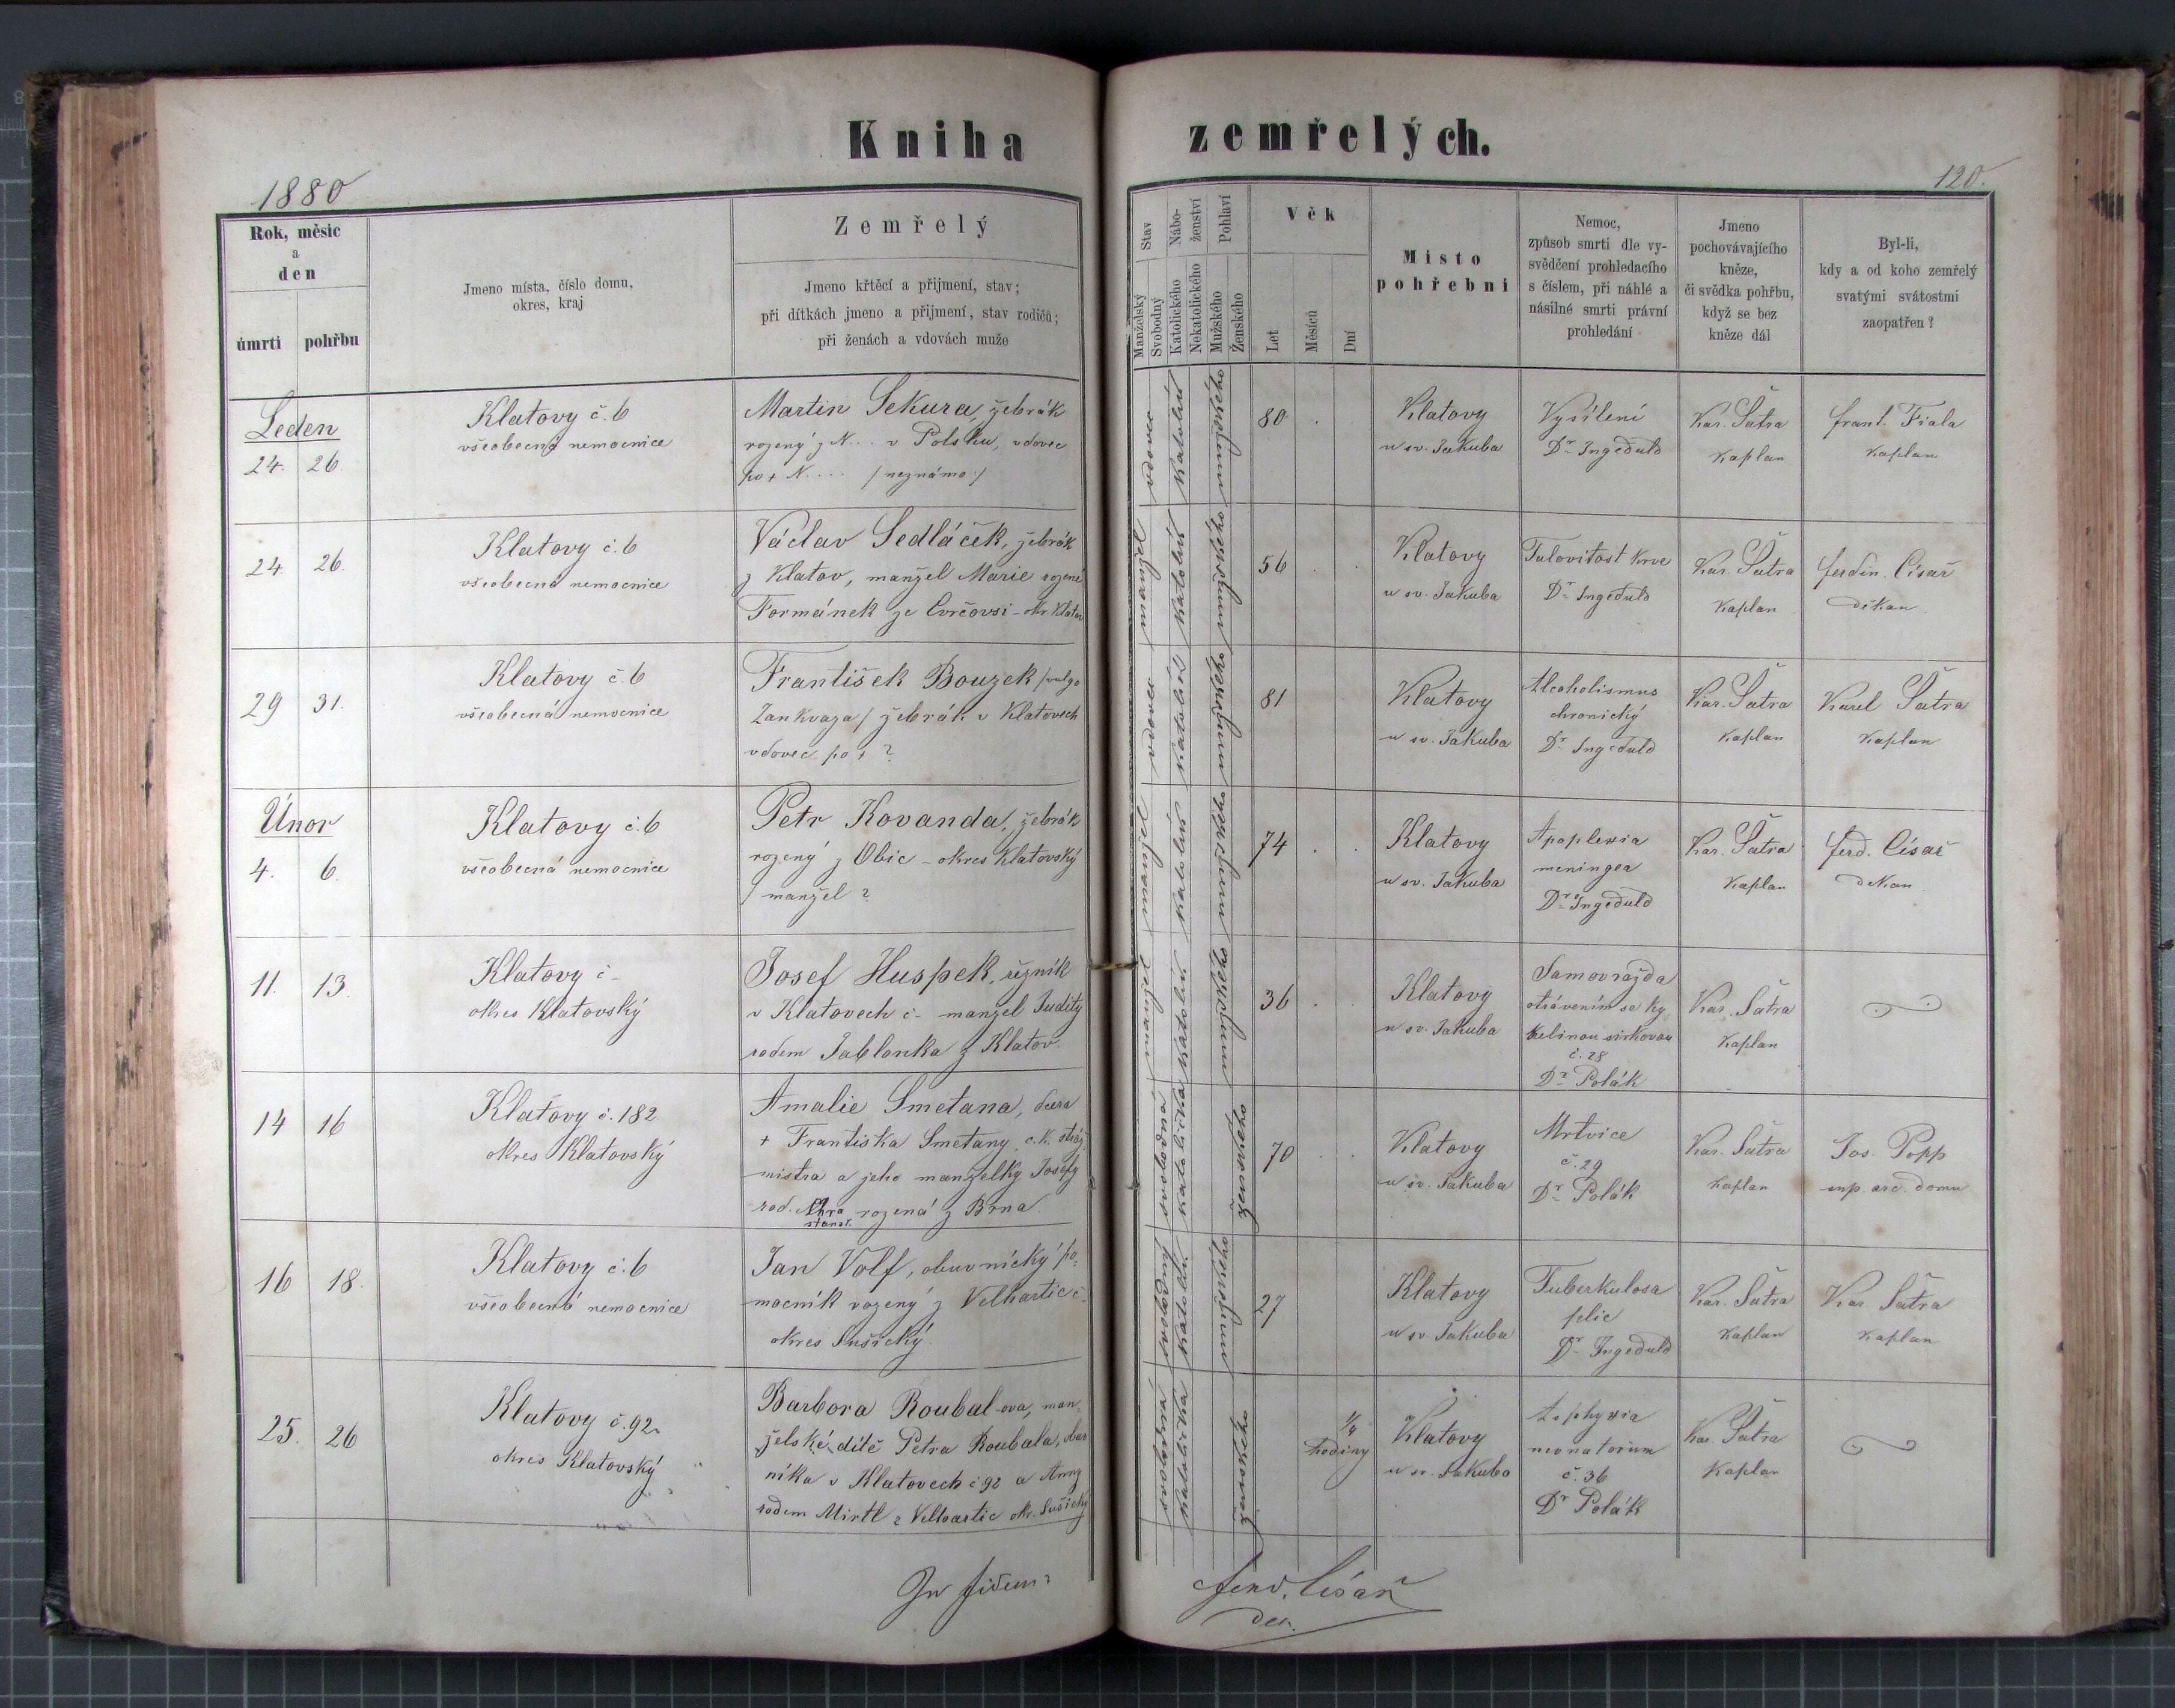 Kniha zemřelých.
1880
120.
Rok, měsíc
a
den
úmrtí
pohřbu
Jmeno místa, číslo domu,
okres, kraj
Zemřelý
Jmeno křtěcí a přijmení, stav;
při dítkách jmeno a přijmení, stav rodičů;
při ženách a vdovách muže
Stav
Manželský
Svobodný
Nábo-
ženství
Katolického
Nekatolického
Pohlaví
Mužského
Ženského
Věk
Let
Měsíců
Dní
Místo
pohřební
Nemoc,
způsob smrti dle vy-
svědčení prohledacího
s číslem, při náhlé a
násilné smrti právní
prohledání
Jmeno
pochovávajícího
kněze,
či svědka pohřbu,
když se bez
kněze dál
Byl-li,
kdy a od koho zemřelý
svatými svátostmi
zaopatřen?
Leden
24. 26
Klatovy č. 6
všeobecná nemocnice
Martin Sekura, žebrák
rozený z N... v Polsku, vdovec
po + N.... /neznámo:/
vdovec
katolík
mužského
80
Klatovy
u sv. Jakuba
Vysílení
Dr Ingeduld
Kar. Šatra
Kaplan
frant. Fiala
Kaplan
24. 26.
Klatovy č. 6
všeobecná nemocnice
Václav Sedláček, žebrák
z Klatov, manžel Marie rozené
Formánek ze Evrčovsi - okr. Klatov
manžel
katolík
mužského
56
Klatovy
u sv. Jakuba
krve
Dr Ingeduld
Kar. Šatra
Kaplan
ferdin. Císař
děkan
29 31.
Klatovy č. 6
všeobecná nemocnice
František Bouzek /vulgo
Zankvaza/ žebrák v Klatovech
vdovec po + ?
vdovec
katolík
mužského
81
Klatovy
u sv. Jakuba
Alcoholismus
chronický
Dr Ingeduld
Kar. Šatra
Kaplan
Karel Šatra
Kaplan
Únor
4. 6.
Klatovy č. 6
všeobecná nemocnice
Petr Kovanda, žebrák
rozený z Obic - okres Klatovský
/ manžel ?
manžel
katolík
mužského
74
Klatovy
u sv. Jakuba
Apoplexia
meningea
Dr Ingeduld
Kar. Šatra
Kaplan
ferd. Císař
děkan
11. 13.
Klatovy č -
okres Klatovský
Josef Huspek, řezník
v Klatovech č - manžel Judity
rodem Jablonka z Klatov.
manžel
katolík
mužského
36
Klatovy
u sv. Jakuba
Samovražda
otrávením se ky
selinou sirkovou
č. 28
Dr Polák
Kar. Šatra
Kaplan
14 16
Klatovy č. 182
okres Klatovský
Amalie Smetana, dcera
+ Františka Smetany, c.k. stráž
mistra a jeho manželky Josefy
rod. rozená z Brna.
svobodná
katolička
ženského
70
Klatovy
u sv. Jakuba
Mrtvice
č. 29
Dr Polák
Kar. Šatra
Kaplan
Jos. Popp
sup. arc. domu
16 18.
Klatovy č. 6
všeobecná nemocnice
Jan Volf, obuvnický po
mocník rozený z Velhartic č-
okres Sušický.
svobodný
katolík
mužského
27
Klatovy
u sv. Jakuba
Tuberkulosa
plic
Dr Ingeduld
Kar. Šatra
Kaplan
Kar. Šatra
Kaplan
25. 26
Klatovy č. 92.
okres Klatovský
Barbora Roubal-ova, man
želské dítě Petra Roubala, obuv
níka v Klatovech č 92 a Anny
rodem Mirtl z Velhartic okr. Sušický
svobodná
katolička
ženského
1/4
hodiny
Klatovy
u sv. Jakuba
Asphyxia
neonatorum
č. 36
Dr Polák
Kar. Šatra
Kaplan
In fidem
ferd. Císař
děk.